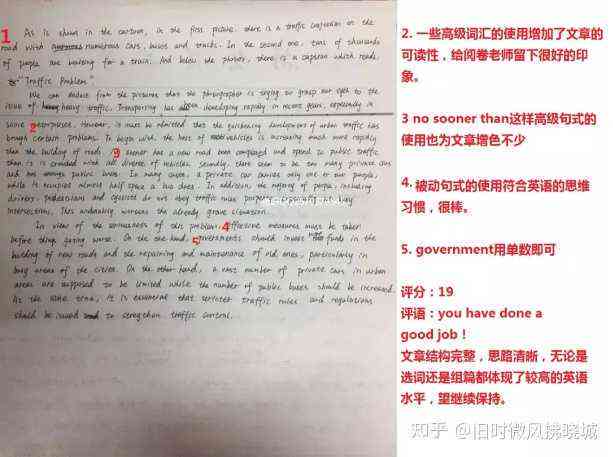 1 As is shown in the cartoon, in the first picture, there is a traffic congestion on the
road with numerous cars, buses and trucks. In the second one, tens of thousands
of people are waiting for a train. And below the photos, there is a caption which reads,
"Traffic Problem."
We can deduce from the pictures that the photographer is trying to
issue of heavy traffic. Transporting has been developing rapidly in recent years, especially in
some 2 metropolises. However, it must be admitted that the quickening development of urban traffic has
brought certain problems. To begin with, the host of vehicles is increasing much more rapidly
than the building of roads. 3 sooner has a new road been completed and opend to public traffic
than it is crowded with all diverse of vehicles. Secondly, there seem to be too many private cars
and not enough public buses. In many cases, a private car carries only one or two people,
while it occupies almost half space a bus does. In addition, the majority of people, including
drivers, pedestrians and cyclists do not obey traffic rules properly, busy
intersections. This undoubtly worsens the already grave situation.
In view of the seriousness of this problem, 4 effective measures must be taken
before things going worse. On the one hand, 5 governments should invest funds in the
building of new roads and the repairing and maintenance of old ones, particularly in
busy areas of the cities. On the other hand, a vast number of private cars in urban
areas are supposed to be limited while the number of public buses should be increased.
At the same time, it is essential that stricter traffic rules and regulations
should be issued to strengthen traffic control.
2. 一些高级词汇的使用增加了文章的
可读性，给阅卷老师留下很好的印
象。
3 no sooner than这样高级句式的
使用也为文章增色不少
4. 被动句式的使用符合英语的思维
习惯，很棒。
5. government用单数即可
评分：19
评语：you have done a
good job！
文章结构完整，思路清晰，无论是
选词还是组篇都体现了较高的英语
水平，望继续保持。
知乎 @旧时微风拂晓城